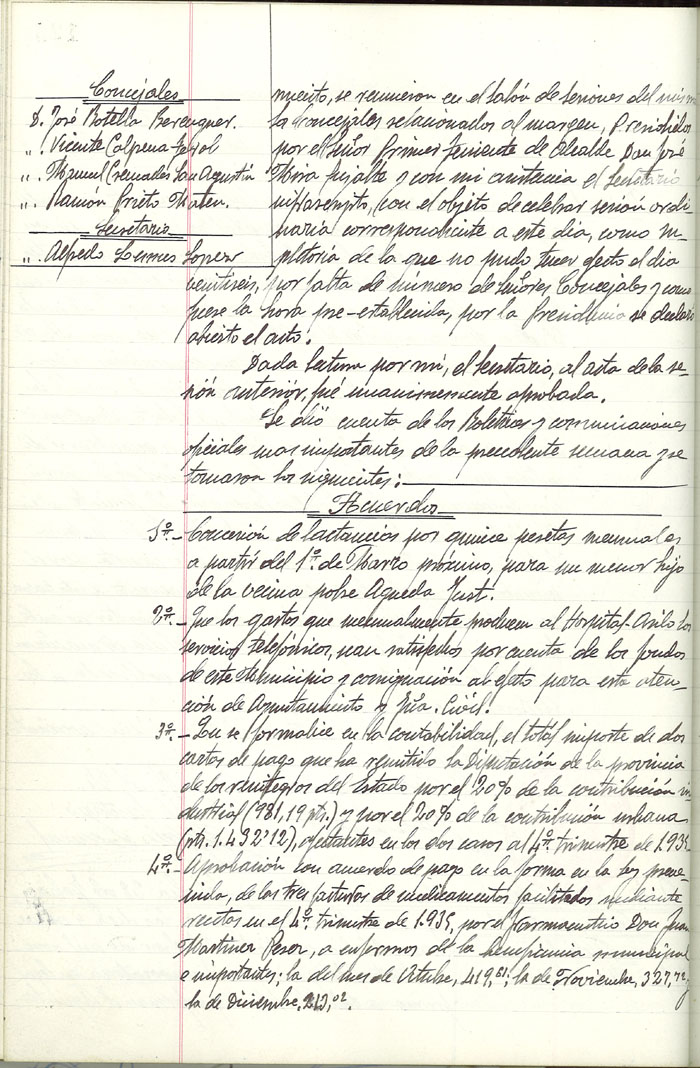 Concejales
D. José Botella Berenguer.
„ Vicente Calpena
„ Manuel Cremades San Agustín
„ Ramón Prieto Mateu.
Secretario
„ Alfredo Lopez
miento, se reunieron en el Salón de Sesiones del mismo
los Concejales relacionados al margen, Presididos
por el Señor Primer Teniente de Alcalde Don José
Mira Pujalte y con mi asistencia el Secretario
infrascripto, con el objeto de celebrar sesión ordi
naria correspondiente a este día, como su-
pletoria de la que no pudo tener efecto el día
veintiseis, por falta de número de Señores Concejales y como
fuese la hora pre-establecida, por la Presidencia se declaró
abierto el acto.
Dada lectura por mí, el Secretario, al acta de la se-
sión anterior, fué unanimemente aprobada.
Se dió cuenta de los Boletines y comunicaciones
oficiales mas importantes de la precedente semana y se
tomaron los siguientes:
Acuerdos
1º.- Concesión de lactancias por quince pesetas mensuales
a partir del 1º. de Marzo próximo, para un menor hijo
de la vecina pobre Agueda Just.
2º.- Que los gastos que mensualmente producen al Hospital-Asilo los
servicios telefónicos, sean satisfechos por cuenta de los fondos
de este Municipio y consignación al efecto para esta aten-
ción de Ayuntamiento y Gia. Civil.
3º.- Que se formalice en la contabilidad, el total importe de dos
cartas de pago que ha remitido la Diputación de la provincia
de los reintegros del Estado por el 20% de la contribución in
dustrial (981,19 pts.) y por el 20% de la contribución urbana
(pts. 1.432'12), afectantes en los dos casos al 4º. trimestre de 1.935
4º.- Aprobación con acuerdo de pago en la forma en la ley preve-
nida, de las tres facturas de medicamentos facilitados mediante
recetas en el 4º. trimestre de 1.935, por el Farmaceutico Don Juan
Martinez Pesor, a enfermos de la beneficencia municipal
e importantes; la del mes de Octubre, 419,51; la de Noviembre, 327,72 y
la de Diciembre, 213,02.